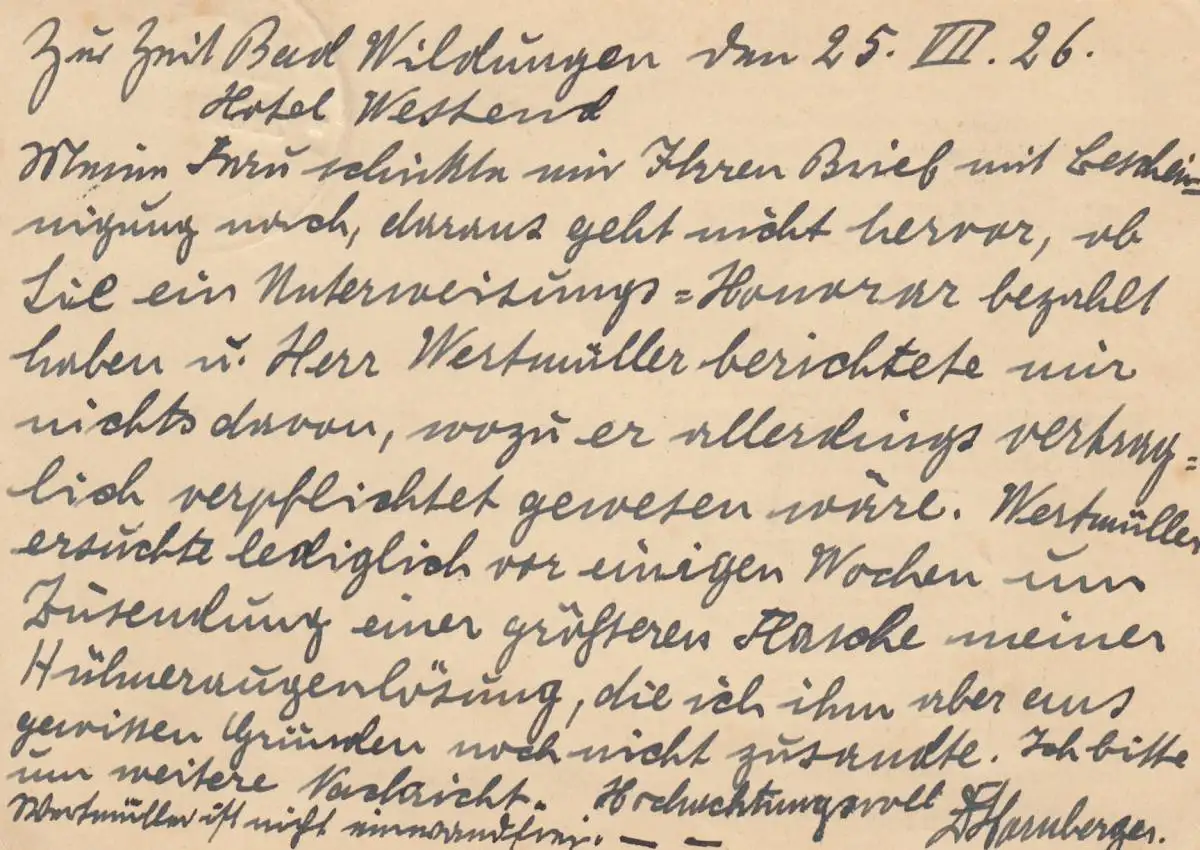 Zur Zeit Bad Wildungen den 25. VII. 26.
Hotel Westend
Meine Frau schickte mir Ihren Brief mit Beschei=
nigung nach, daraus geht nicht hervor, ob
Sie ein Unterweisungs=Honorar bezahlt
haben u. Herr Wertmüller berichtete mir
nichts davon, wozu er allerdings vertrag=
lich verpflichtet gewesen wäre. Wertmüller
ersuchte lediglich vor einigen Wochen um
Zusendung einer größeren Flasche meiner
Hühneraugenlösung, die ich ihm aber aus
gewissen Gründen noch nicht zusandte. Ich bitte
um weitere Nachricht. Hochachtungsvoll
Wertmüller ist nicht einwandfrei. — — Hornberger.